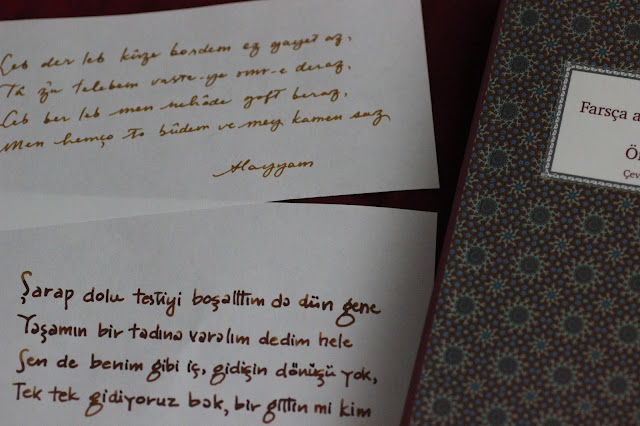 Leb der leb kûze bordem ez gayet az,
Tâ z'u telebem vaste-ye omr-e deraz,
Leb ber leb men nehâde goft beraz,
Men hemço to bûdem ve mey kamen saz
Hayyam
Şarap dolu testiyi boşalttım da dün gene
Yaşamın bir tadına varalım dedim hele
Sen de benim gibi iç, gidişin dönüşü yok,
Tek tek gidiyoruz bak, bir gittin mi kim
Farsça a
Ö
Çev